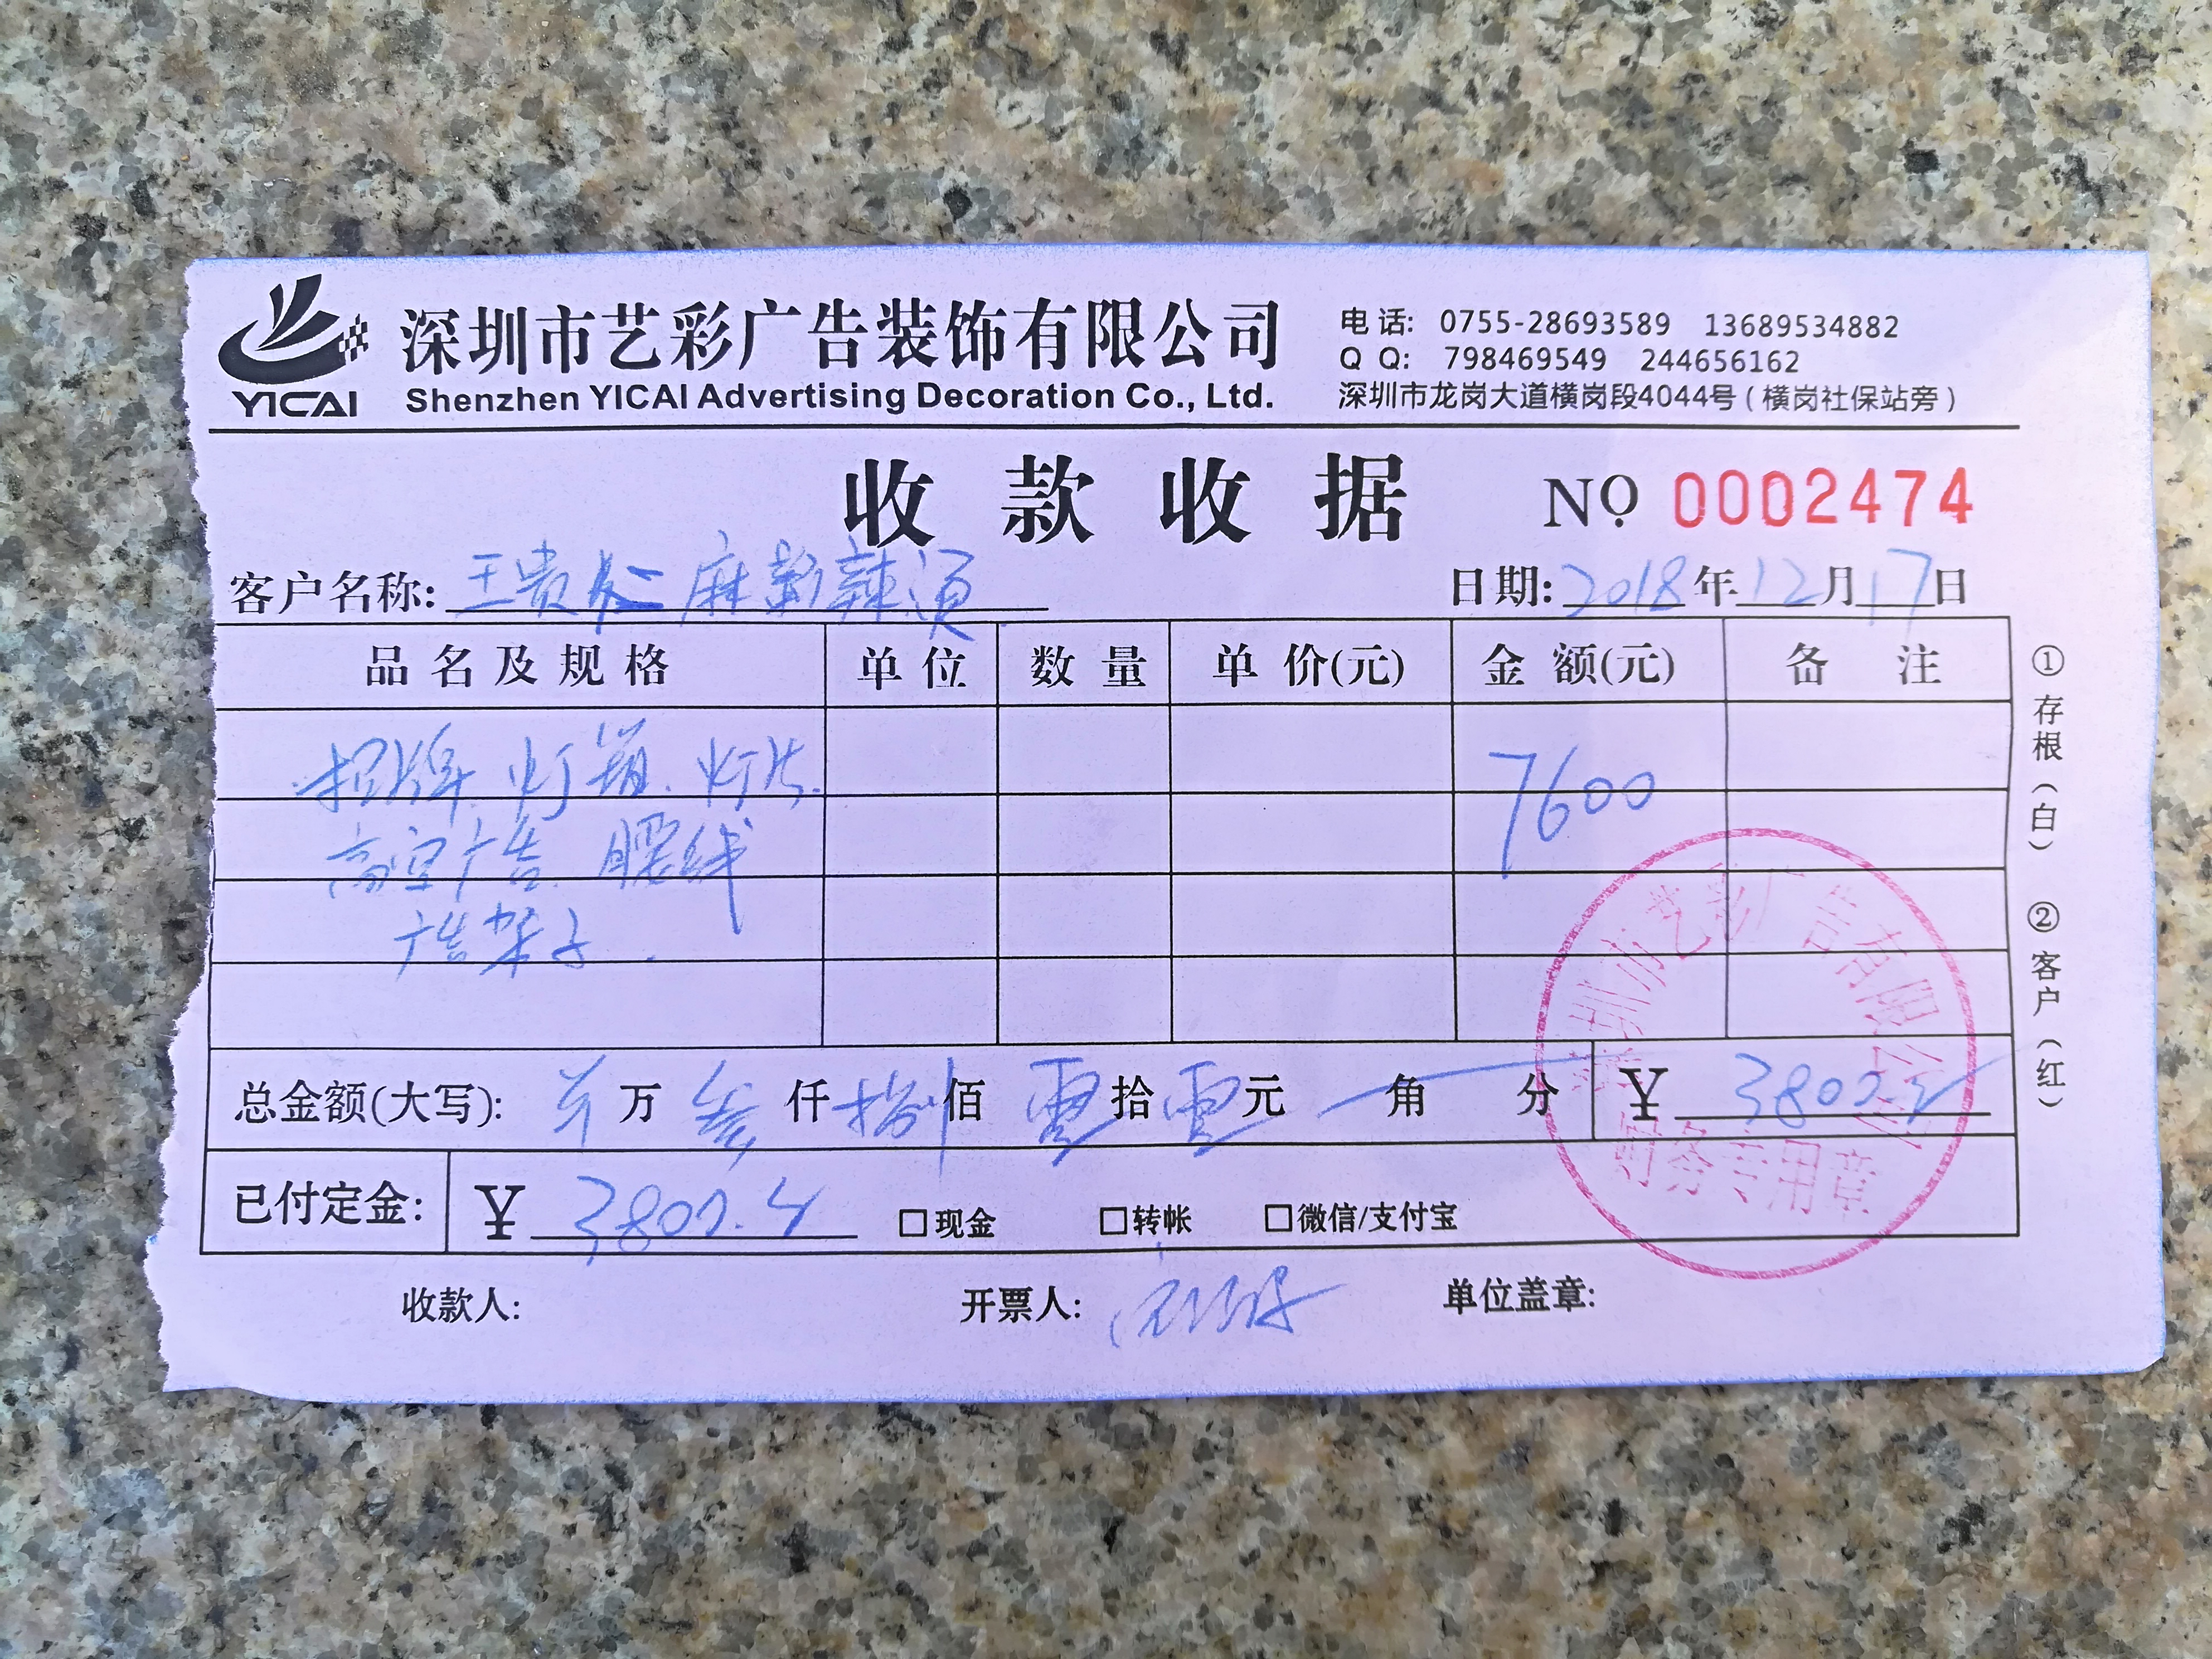 深圳市艺彩广告装饰有限公司
YICAI
Shenzhen YICAI Advertising Decoration Co., Ltd.
电话: 0755-28693589 13689534882
Q Q: 798469549 244656162
深圳市龙岗大道横岗段4044号(横岗社保站旁)
收款收据 NO 0002474
客户名称: 王贵 麻 辣烫
日期: 2018年12月17日
品名及规格 单位 数量 单价(元) 金额(元) 备注
招牌.灯箱.灯片. 7600
高空广告.腰线
广告架子.
总金额(大写): 万叁仟捌佰零拾零元 角 分 ¥ 3800.
已付定金: ¥ 3800. □现金 □转帐 □微信/支付宝
收款人: 开票人: 单位盖章:
①存根(白) ②客户(红)
深圳市艺彩广告有限公司
财务专用章